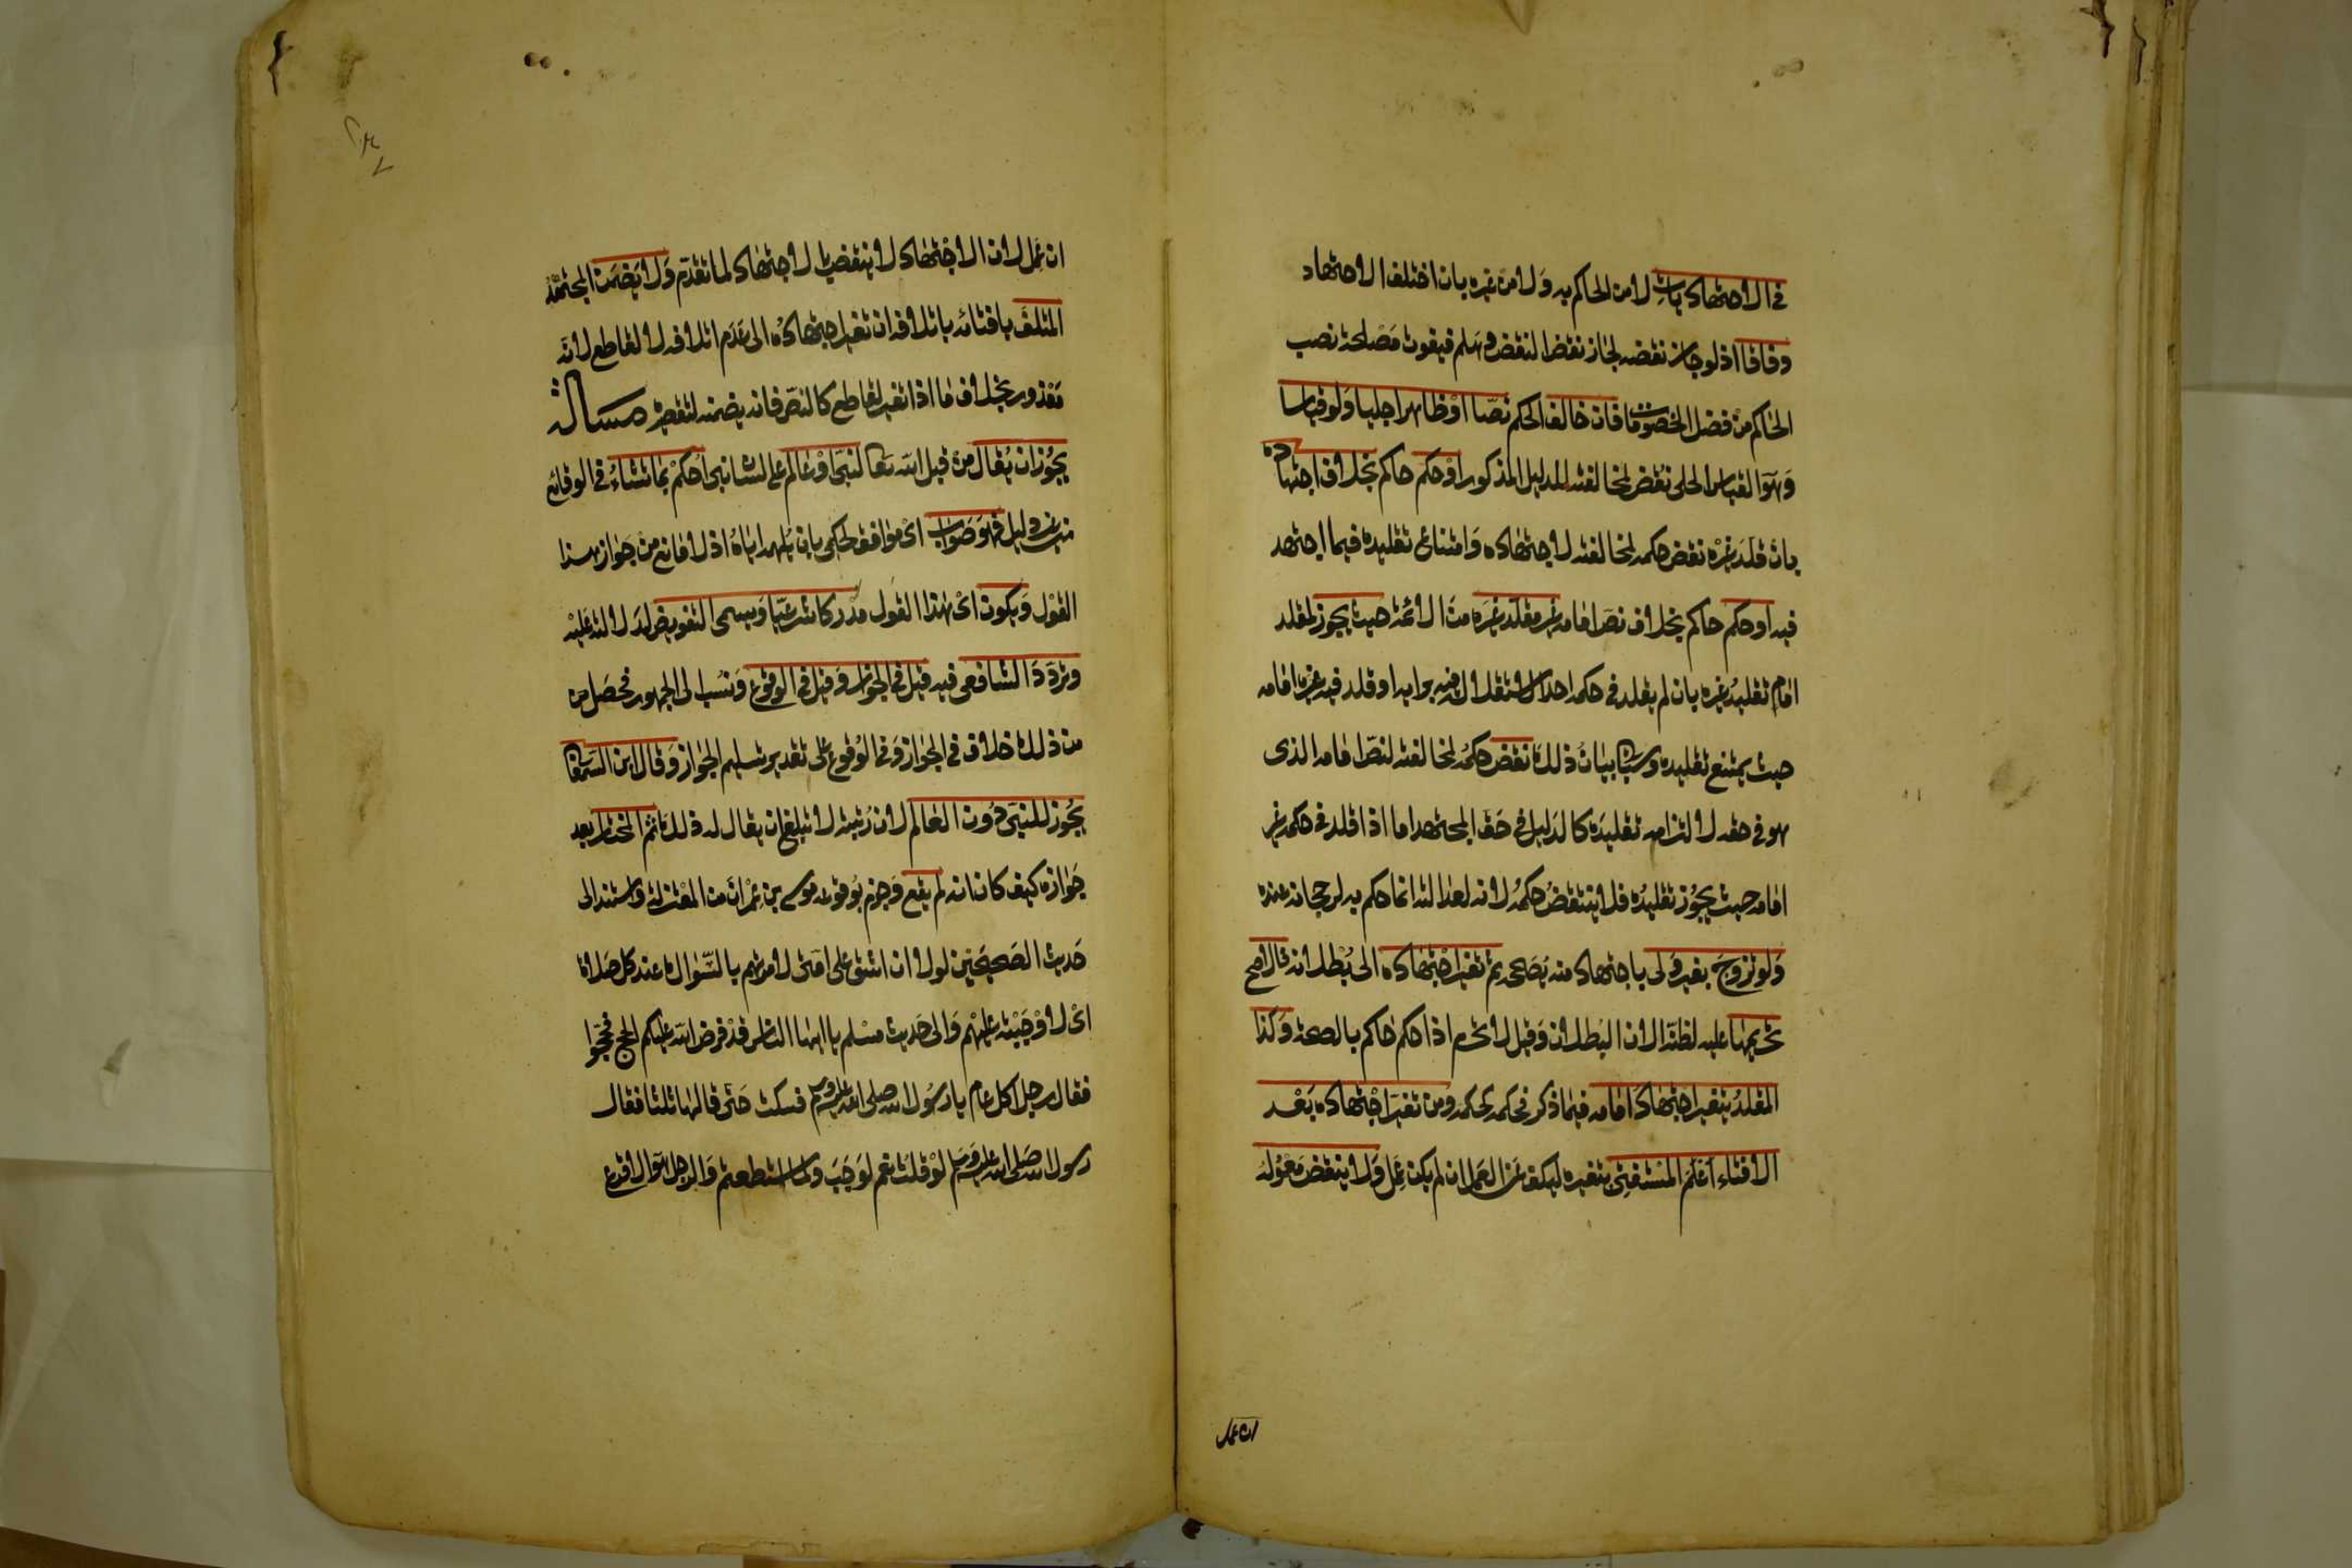 في الاجتهاديات لا من الحاكم به ولا من غيره بان اختلف الاجتهاد
وفاقا اذ لو جاز نقضه لجاز نقض النقض وهلم فيفوت مصلحة نصب
الحاكم من فصل الخصومات فان خالف الحكم نصّا او ظاهرا جليا ولو قياسا
وهو القياس الجلى نقض لمخالفته للدليل المذكور او حكم حاكم بخلاف اجتهاده
بان قلد غيره نقض حكمه لمخالفته لاجتهاده وامتناع تقليده فيما اجتهد
فيه او حكم حاكم بخلاف نص امامه غير مقلد غيره من الائمة حيث يجوز لمقلد
امام تقليد غيره بان لم يقلد في حكمه احدا لاستقلاله فيه برايه او قلد فيه غير امامه
حيث يمتنع تقليده وسياتى بيان ذلك نقض حكمه لمخالفته لنص امامه الذى
هو في حقه لالتزامه تقليده كالدليل في حق المجتهد اما اذا قلد في حكمه غير
امامه حيث يجوز تقليده فلا ينتقض حكمه لانه لعدالته انما حكم به لرجحانه عنده
ولو تزوج بغير ولى باجتهاد منه يصححه ثم تغير اجتهاده الى بطلانه فالاصح
تحريمها عليه لظنه الان البطلان وقيل لا تحرم اذا حكم حاكم بالصحة وكذا
المقلد يتغير اجتهاد امامه فيما ذكر فحكمه كحكمه ومن تغير اجتهاده بعد
الافتاء اعلم المستفتى بتغيره ليكف عن العمل ان لم يكن عمل ولا ينتقض معموله
ان عمل
٢٣٧
ان عمل لان الاجتهاد لا ينتقض بالاجتهاد لما تقدم ولا يضمن المجتهد
المتلف بافتائه باتلافه ان تغير اجتهاده الى عدم اتلافه لا لقاطع لانه
معذور بخلاف ما اذا تغير لقاطع كالنص فانه يضمنه لتقصيره مسالة
يجوز ان يقال من قبل الله تعالى لنبى او عالم على لسان نبى احكم بما تشاء في الوقائع
من غير دليل فهو صواب اى موافق لحكمى بان يلهمه اياه اذ لا مانع من جواز هذا
القول ويكون اى هذا القول مدركا شرعيا ويسمى التفويض لدلالته عليه
وتردد الشافعى فيه قيل في الجواز وقيل في الوقوع ونسب الى الجمهور فحصل من
من ذلك خلاف في الجواز وفي الوقوع على تقدير تسليم الجواز وقال ابن السمعانى
يجوز للنبى دون العالم لان رتبته لا تبلغ ان يقال له ذلك ثم المختار بعد
جوازه كيف كان انه لم يقع وجزم بوقوعه موسى بن عمران من المعتزلة واستند الى
حديث الصحيحين لولا ان اشق على امتى لامرتهم بالسواك عند كل صلاة
اى لاوجبته عليهم والى حديث مسلم يا ايها الناس قد فرض الله عليكم الحج فحجوا
فقال رجل اكل عام يا رسول الله صلى الله عليه وسلم فسكت حتى قالها ثلثا فقال
رسول الله صلى الله عليه وسلم لو قلت نعم لوجبت ولما استطعتم والرجل هو الاقرع